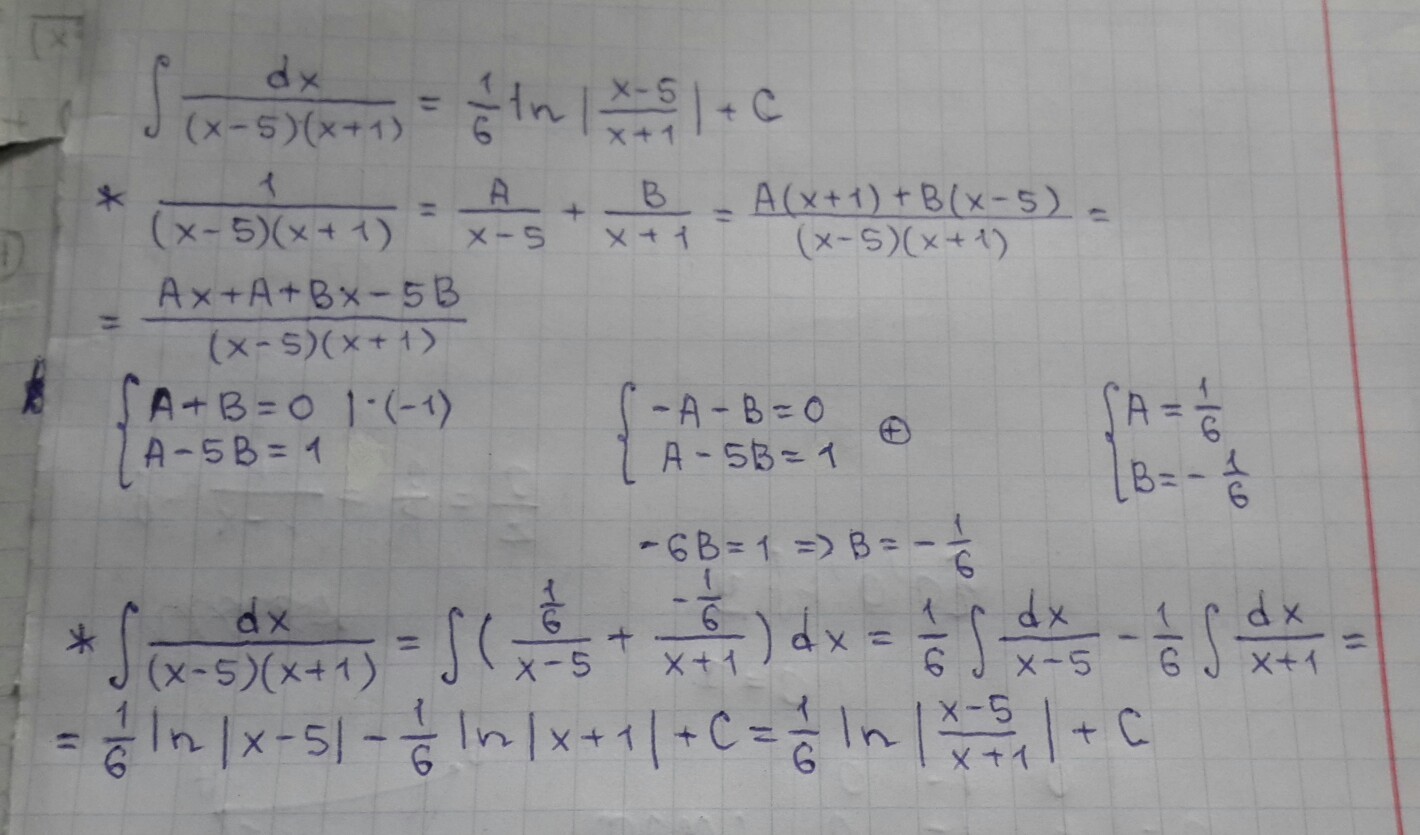 ∫ dx/((x-5)(x+1)) = 1/6 ln |(x-5)/(x+1)| + C
* 1/((x-5)(x+1)) = A/(x-5) + B/(x+1) = (A(x+1)+B(x-5))/((x-5)(x+1)) =
= (Ax+A+Bx-5B)/((x-5)(x+1))
{ A+B=0 |·(-1) { -A-B=0 ⊕ { A=1/6
A-5B=1 A-5B=1 B=-1/6
-6B=1 => B=-1/6
* ∫ dx/((x-5)(x+1)) = ∫( (1/6)/(x-5) + (-1/6)/(x+1) ) dx = 1/6 ∫ dx/(x-5) - 1/6 ∫ dx/(x+1) =
= 1/6 ln |x-5| - 1/6 ln |x+1| + C = 1/6 ln |(x-5)/(x+1)| + C